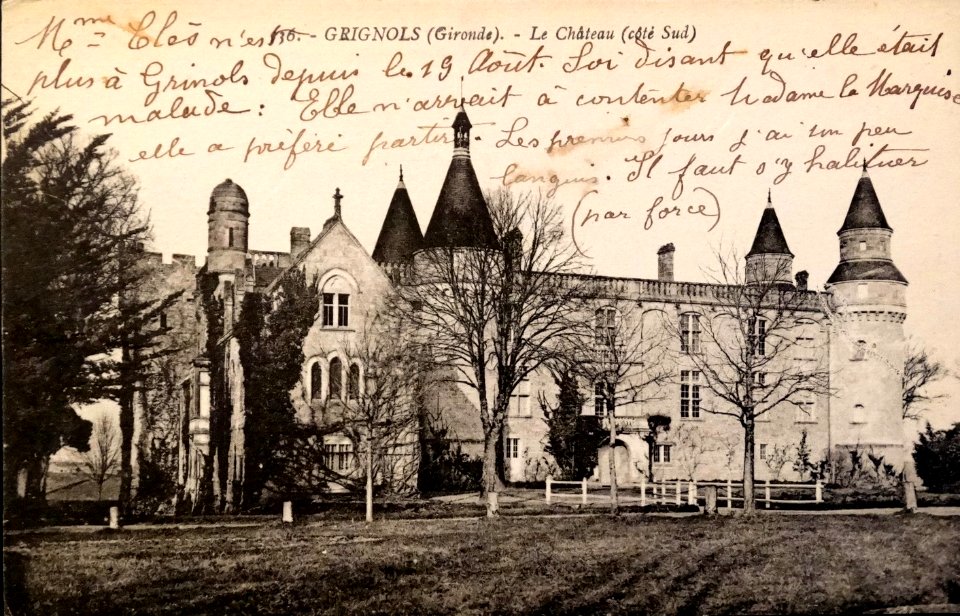 136. - GRIGNOLS (Gironde). - Le Château (côté Sud)
Mme Elès n'est
plus à Grinols depuis le 19 Août. Soi disant qu'elle était
malade : Elle n'arrivait à contenter Madame la Marquise
elle a préféré partir. - Les premiers jours j'ai un peu
languis. Il faut s'y habituer
(par force)